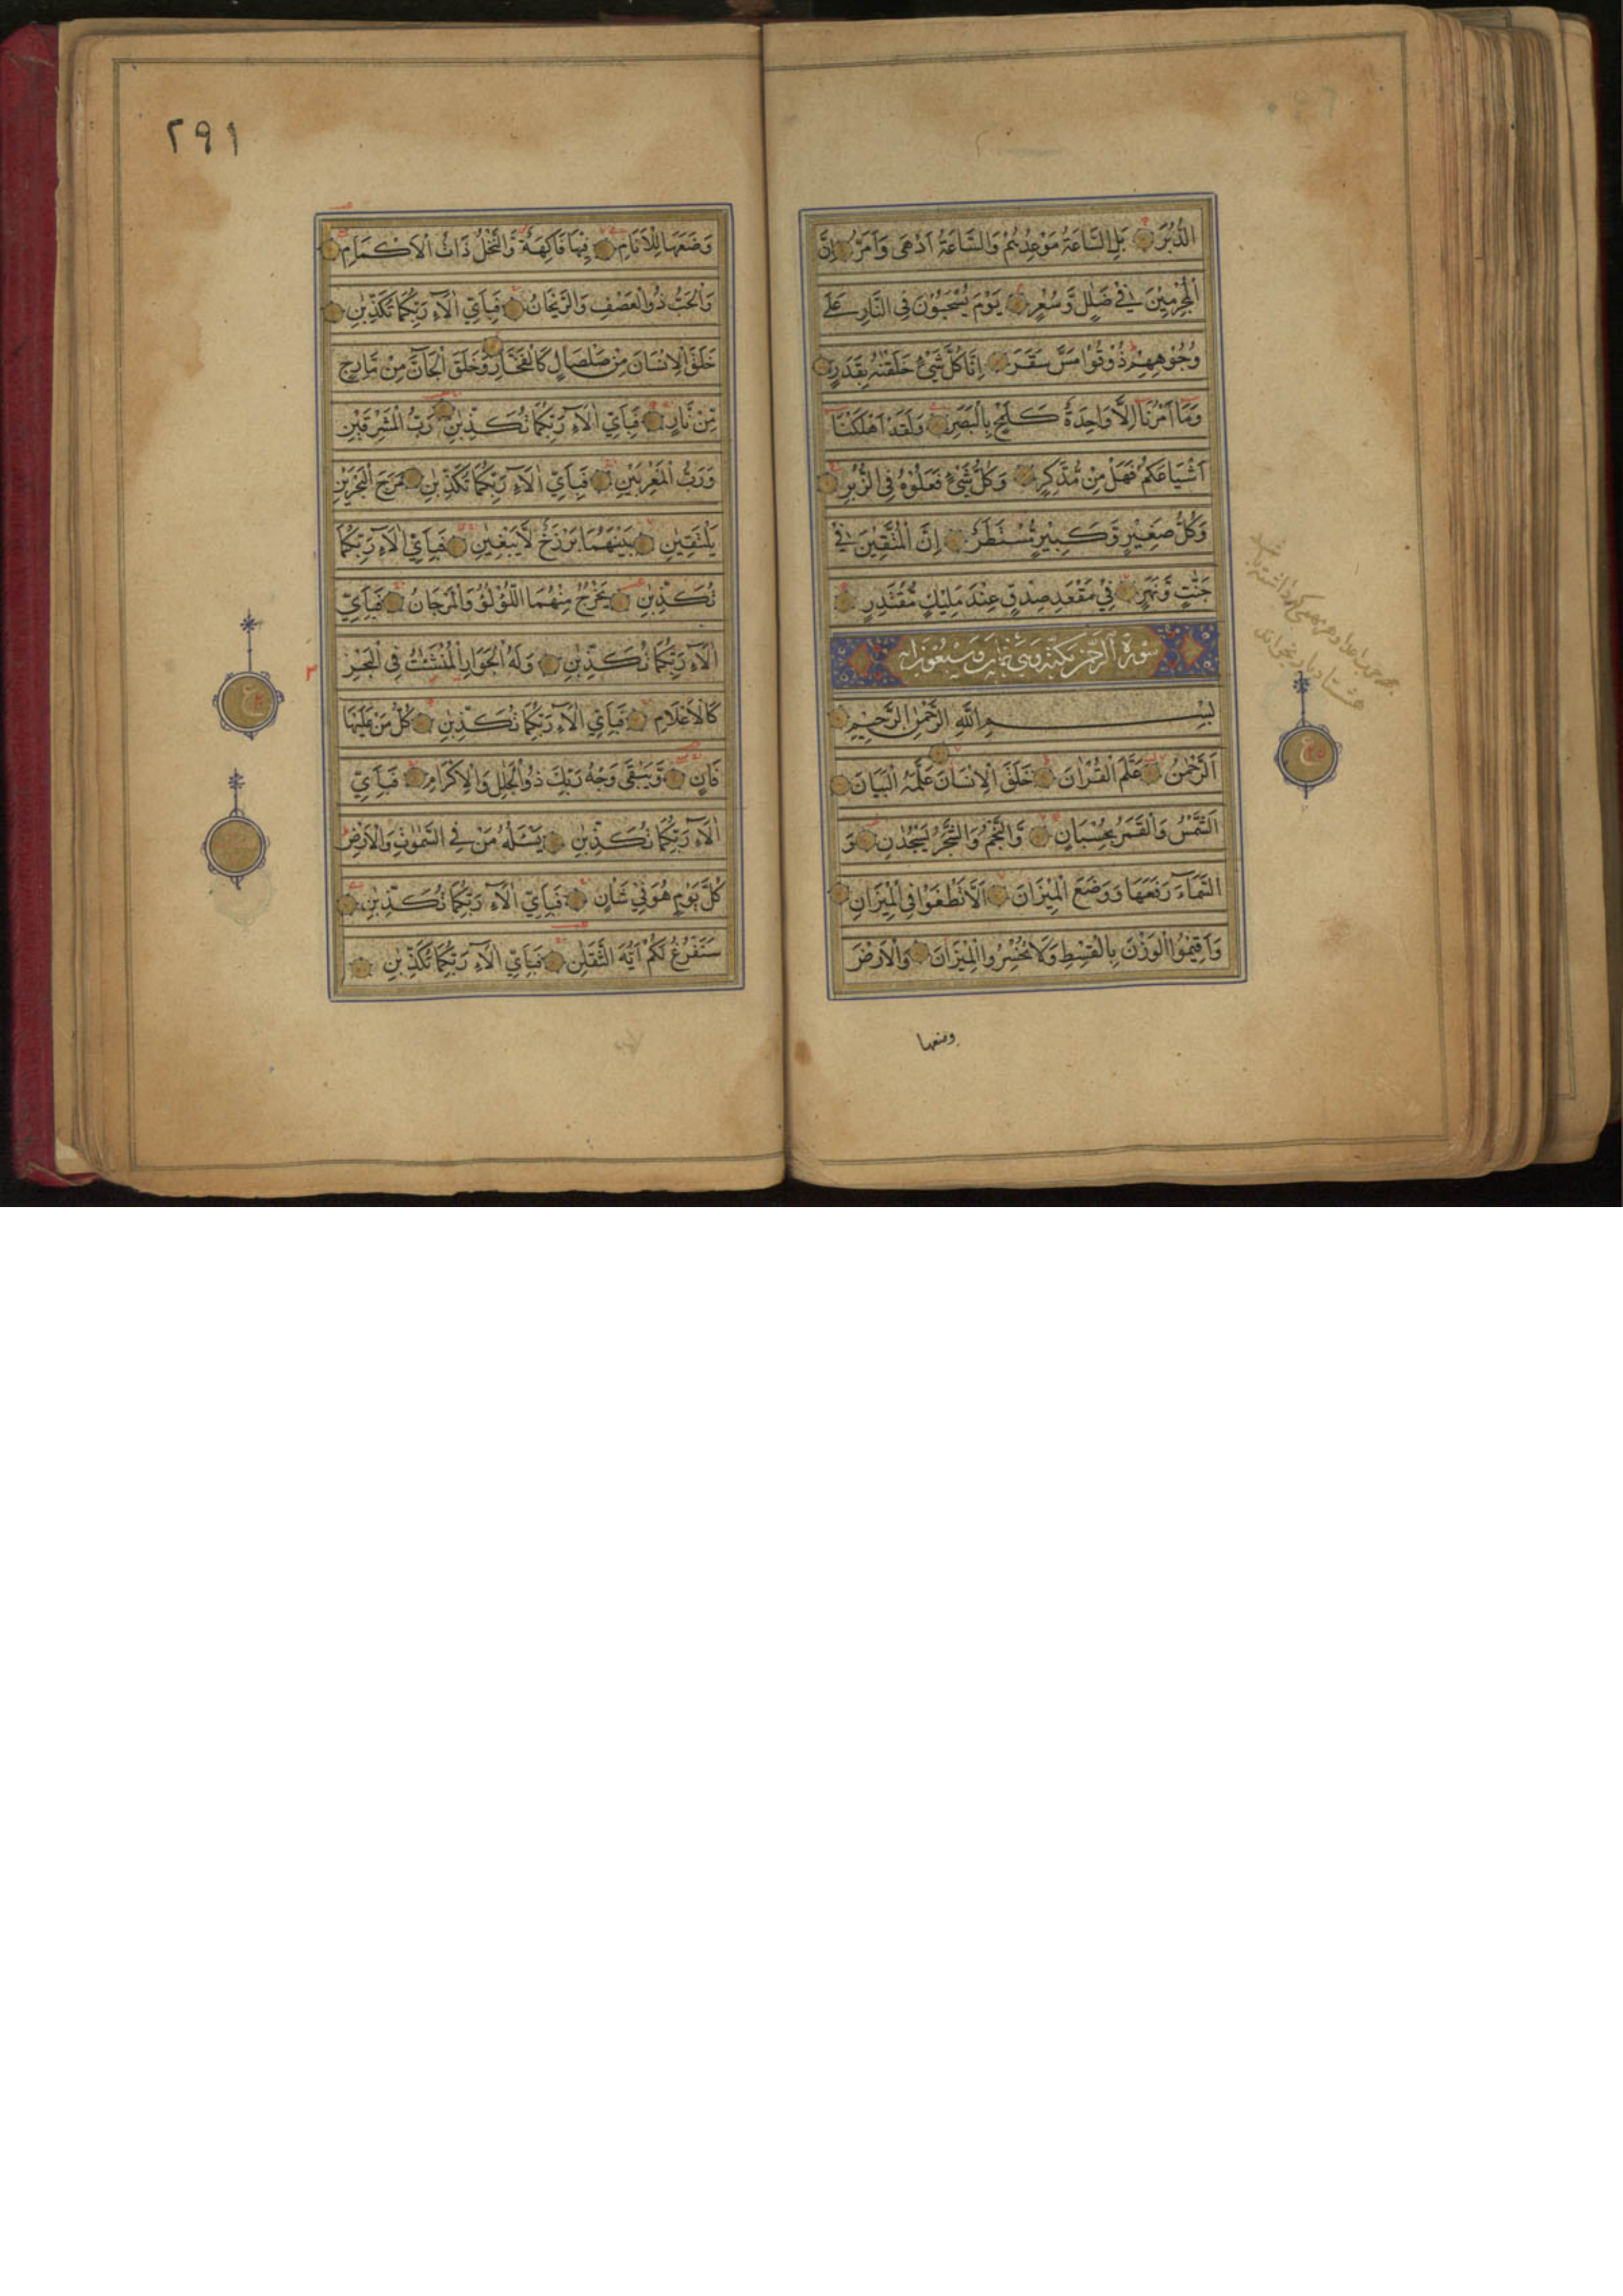 الدُّبُرَ بَلِ السَّاعَةُ مَوْعِدُهُمْ وَالسَّاعَةُ اَدْهٰى وَاَمَرُّ اِنَّ
الْمُجْرِمِيْنَ فِيْ ضَلٰلٍ وَّسُعُرٍ يَوْمَ يُسْحَبُوْنَ فِى النَّارِ عَلٰى
وُجُوْهِهِمْ ذُوْقُوْا مَسَّ سَقَرَ اِنَّا كُلَّ شَيْءٍ خَلَقْنٰهُ بِقَدَرٍ
وَمَا اَمْرُنَا اِلَّا وَاحِدَةٌ كَلَمْحٍ بِالْبَصَرِ وَلَقَدْ اَهْلَكْنَا
اَشْيَاعَكُمْ فَهَلْ مِنْ مُّدَّكِرٍ وَكُلُّ شَيْءٍ فَعَلُوْهُ فِى الزُّبُرِ
وَكُلُّ صَغِيْرٍ وَّكَبِيْرٍ مُّسْتَطَرٌ اِنَّ الْمُتَّقِيْنَ فِيْ
جَنّٰتٍ وَّنَهَرٍ فِيْ مَقْعَدِ صِدْقٍ عِنْدَ مَلِيْكٍ مُّقْتَدِرٍ
سورة الرحمن مكية وهي ثمان وسبعون اية
بِسْمِ اللّٰهِ الرَّحْمٰنِ الرَّحِيْمِ
اَلرَّحْمٰنُ عَلَّمَ الْقُرْاٰنَ خَلَقَ الْاِنْسَانَ عَلَّمَهُ الْبَيَانَ
اَلشَّمْسُ وَالْقَمَرُ بِحُسْبَانٍ وَّالنَّجْمُ وَالشَّجَرُ يَسْجُدٰنِ وَ
السَّمَآءَ رَفَعَهَا وَوَضَعَ الْمِيْزَانَ اَلَّا تَطْغَوْا فِى الْمِيْزَانِ
وَاَقِيْمُوا الْوَزْنَ بِالْقِسْطِ وَلَا تُخْسِرُوا الْمِيْزَانَ وَالْاَرْضَ
وضعها
٢٩١
وَضَعَهَا لِلْاَنَامِ فِيْهَا فَاكِهَةٌ وَّالنَّخْلُ ذَاتُ الْاَكْمَامِ
وَالْحَبُّ ذُو الْعَصْفِ وَالرَّيْحَانُ فَبِاَيِّ اٰلَآءِ رَبِّكُمَا تُكَذِّبٰنِ
خَلَقَ الْاِنْسَانَ مِنْ صَلْصَالٍ كَالْفَخَّارِ وَخَلَقَ الْجَآنَّ مِنْ مَّارِجٍ
مِّنْ نَّارٍ فَبِاَيِّ اٰلَآءِ رَبِّكُمَا تُكَذِّبٰنِ رَبُّ الْمَشْرِقَيْنِ
وَرَبُّ الْمَغْرِبَيْنِ فَبِاَيِّ اٰلَآءِ رَبِّكُمَا تُكَذِّبٰنِ مَرَجَ الْبَحْرَيْنِ
يَلْتَقِيٰنِ بَيْنَهُمَا بَرْزَخٌ لَّا يَبْغِيٰنِ فَبِاَيِّ اٰلَآءِ رَبِّكُمَا
تُكَذِّبٰنِ يَخْرُجُ مِنْهُمَا اللُّؤْلُؤُ وَالْمَرْجَانُ فَبِاَيِّ
اٰلَآءِ رَبِّكُمَا تُكَذِّبٰنِ وَلَهُ الْجَوَارِ الْمُنْشَئٰتُ فِى الْبَحْرِ
كَالْاَعْلَامِ فَبِاَيِّ اٰلَآءِ رَبِّكُمَا تُكَذِّبٰنِ كُلُّ مَنْ عَلَيْهَا
فَانٍ وَّيَبْقٰى وَجْهُ رَبِّكَ ذُو الْجَلٰلِ وَالْاِكْرَامِ فَبِاَيِّ
اٰلَآءِ رَبِّكُمَا تُكَذِّبٰنِ يَسْئَلُهُ مَنْ فِى السَّمٰوٰتِ وَالْاَرْضِ
كُلَّ يَوْمٍ هُوَ فِيْ شَاْنٍ فَبِاَيِّ اٰلَآءِ رَبِّكُمَا تُكَذِّبٰنِ
سَنَفْرُغُ لَكُمْ اَيُّهَ الثَّقَلٰنِ فَبِاَيِّ اٰلَآءِ رَبِّكُمَا تُكَذِّبٰنِ